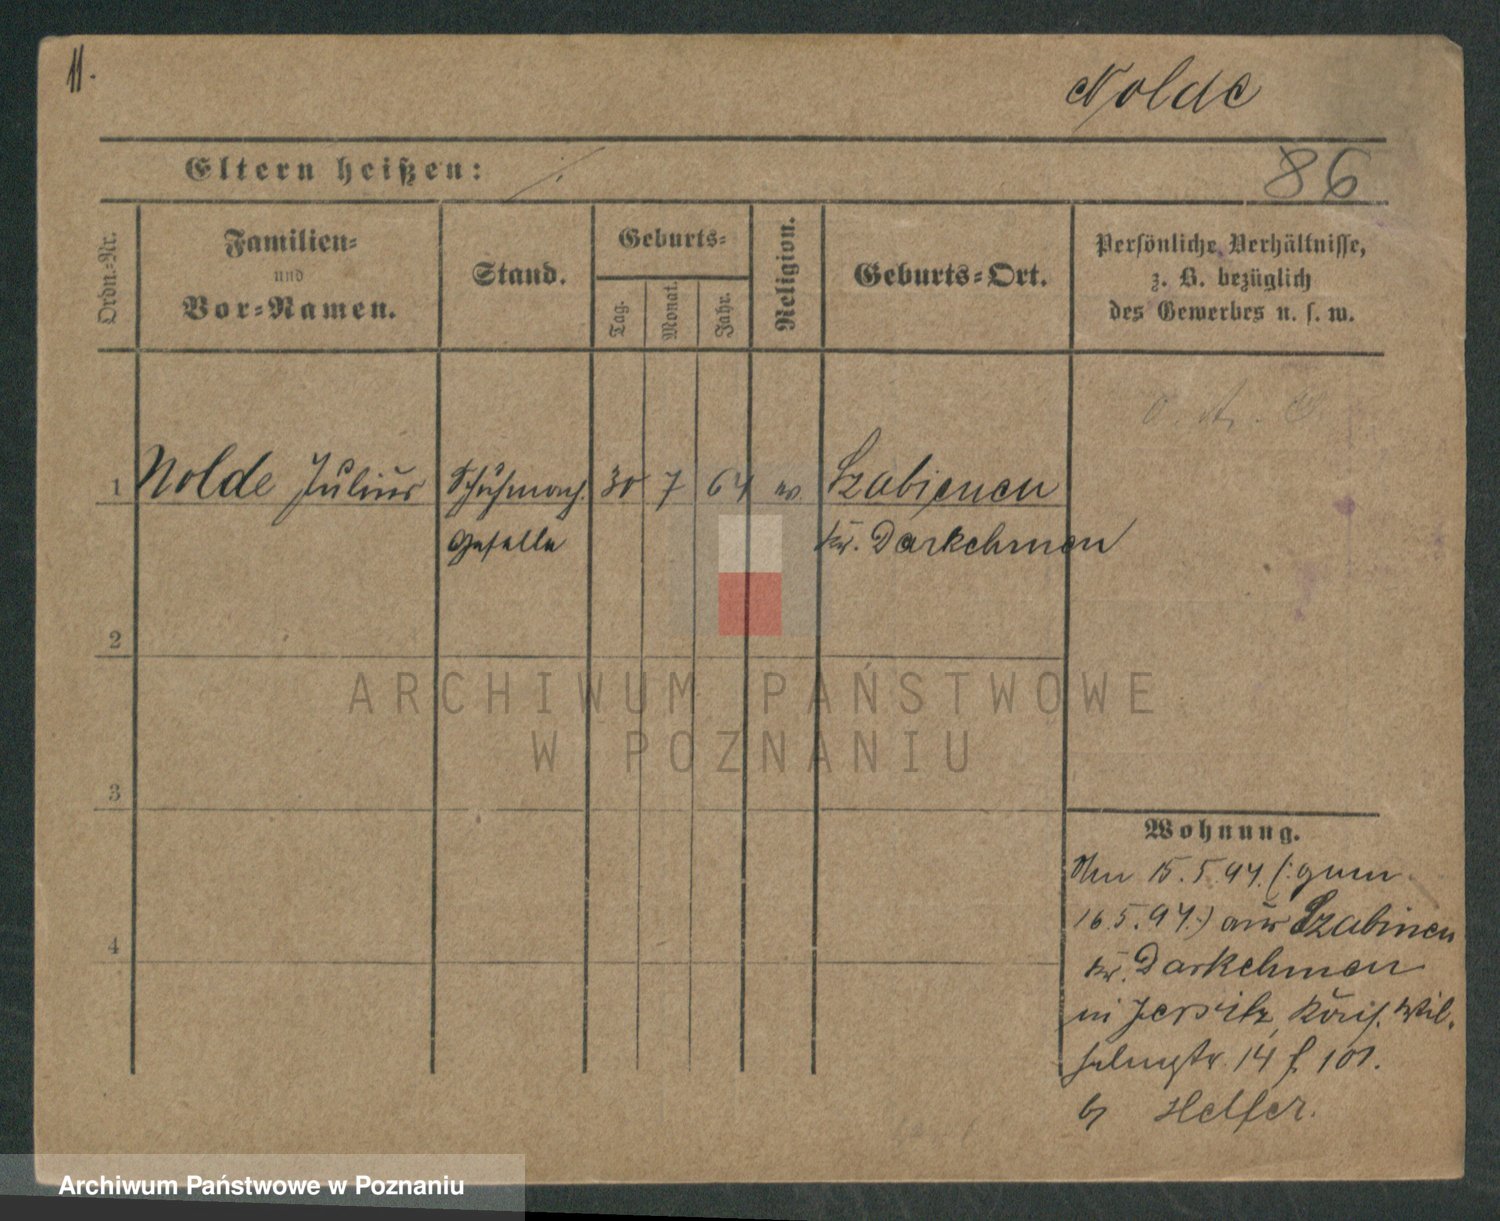 11.
Nolde
Eltern heißen: ./.
86
Ordn.-Nr.
Familien-
und
Vor-Namen.
Stand.
Geburts-
Tag.
Monat.
Jahr.
Religion.
Geburts-Ort.
Persönliche Verhältnisse,
z. B. bezüglich
des Gewerbes u. s. w.
1 Nolde Julius Schuhmach. 30 7 64 ev. Szabienen
Geselle Kr. Darkehmen
2
ARCHIWUM PAŃSTWOWE
W POZNANIU
3
4
Wohnung.
15.5.94. (:gem
16.5.94.:) aus Szabinen
Kr. Darkehmen
in Jersitz, Kais. Wil-
helmstr. 14 f. 101.
b/ Helfer.
Archiwum Państwowe w Poznaniu